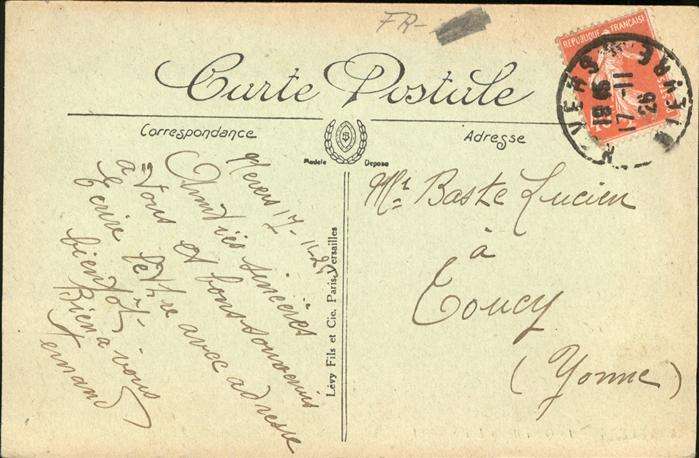 FR-
Carte Postale
Correspondance
Adresse
Modèle Déposé
REPUBLIQUE FRANÇAISE
NEVERS NIEVRE
17-11
26
Nevers 17-11-26
Amitiés sincères
à Vous et bons souvenirs
Ecrire lettre avec adresse
bientôt
Bien à vous
Fernand
Lévy Fils et Cie, Paris-Versailles
Mr. Baste Lucien
à
Toucy
(Yonne)